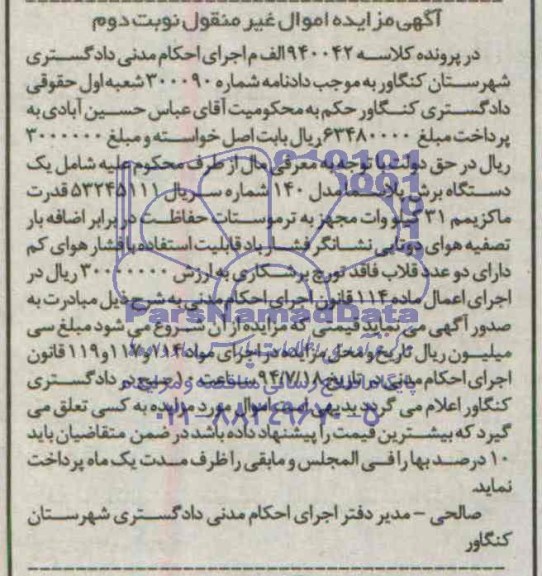 آگهی مزایده اموال غیر منقول نوبت دوم
در پرونده کلاسه ۹۴۰۰۴۲ الف م اجرای احکام مدنی دادگستری
شهرستان کنگاور به موجب دادنامه شماره ۳۰۰۰۹۰ شعبه اول حقوقی
دادگستری کنگاور حکم به محکومیت آقای عباس حسین آبادی به
پرداخت مبلغ ۶۳۴۸۰۰۰۰ ریال بابت اصل خواسته و مبلغ ۳۰۰۰۰۰۰
ریال در حق دولت با توجه به معرفی مال از طرف محکوم علیه شامل یک
دستگاه برش پلاسما مدل ۱۴۰ شماره سریال ۵۳۳۴۵۱۱۱ قدرت
ماکزیمم ۳۱ کیلو وات مجهز به ترموستات حفاظت در برابر اضافه بار
تصفیه هوای دوتایی نشانگر فشار باد قابلیت استفاده با فشار هوای کم
دارای دو عدد قلاب فاقد تورچ برشکاری به ارزش ۳۰۰۰۰۰۰۰ ریال در
اجرای اعمال ماده ۱۱۴ قانون اجرای احکام مدنی به شرح ذیل مبادرت به
صدور آگهی می نماید قیمتی که مزایده از آن شروع می شود مبلغ سی
میلیون ریال تاریخ و محل مزایده در اجرای مواد ۱۱۴ و ۱۱۷ و ۱۱۹ قانون
اجرای احکام مدنی در تاریخ ۹۴/۷/۱۸ ساعت ۱۰ صبح در دادگستری
کنگاور اعلام می گردد بدیهی است اموال مورد مزایده به کسی تعلق می
گیرد که بیشترین قیمت را پیشنهاد داده باشد در ضمن متقاضیان باید
۱۰ درصد بها را فی المجلس و مابقی را ظرف مدت یک ماه پرداخت
نماید.
صالحی – مدیر دفتر اجرای احکام مدنی دادگستری شهرستان
کنگاور
ParsNamadData
پایگاه اطلاع رسانی مناقصه و مزایده
۰۲۱-۸۸۳۴۹۶۷۰-۵